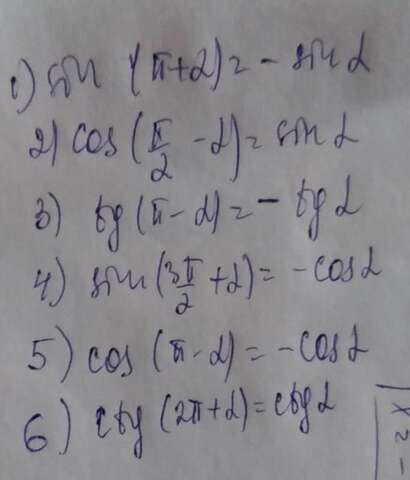 1) sin (π+α)= - sin α
2) cos (π/2 - α)= sin α
3) tg (π - α)= - tg α
4) sin (3π/2 + α)= - cos α
5) cos (π - α) = - cos α
6) ctg (2π+α)= ctg α